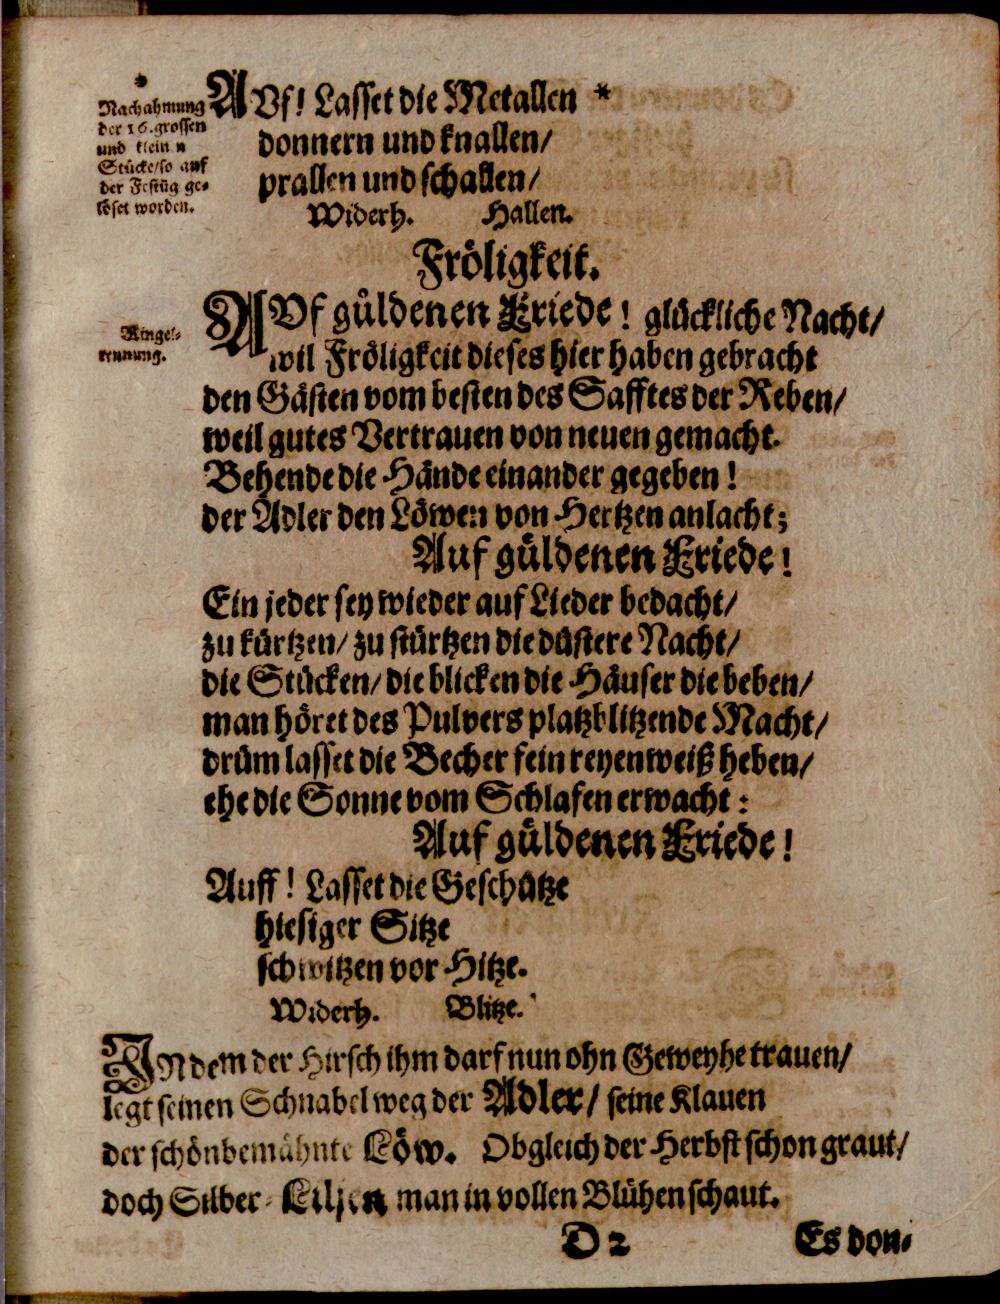 *
Nachahmung
der 16. grossen
und klein n
Stücke/so auf
der Festūg ge-
löset worden.
AUf! Lasset die Metallen *
donnern und knallen/
prallen und schallen/
Widerh. Hallen.
Fröligkeit.
Ringel-
rennung.
AUf güldenen Friede! glückliche Nacht/
wil Fröligkeit dieses hier haben gebracht
den Gästen vom besten des Safftes der Reben/
weil gutes Vertrauen von neuen gemacht.
Behende die Hände einander gegeben!
der Adler den Löwen von Hertzen anlacht;
Auf güldenen Friede!
Ein jeder sey wieder auf Lieder bedacht/
zu kürtzen/ zu stürtzen die düstere Nacht/
die Stücken/ die blicken die Häuser die beben/
man höret des Pulvers platzblitzende Macht/
drüm lasset die Becher fein reyenweiß heben/
ehe die Sonne vom Schlafen erwacht:
Auf güldenen Friede!
Auff! Lasset die Geschütze
hiesiger Sitze
schwitzen vor Hitze.
Widerh. Blitze.
INdem der Hirsch ihm darf nun ohn Geweyhe trauen/
legt seinen Schnabel weg der Adler/ seine Klauen
der schönbemähnte Löw. Obgleich der Herbst schon graut/
doch Silber-Liljen man in vollen Blühen schaut.
D 2 Es don-